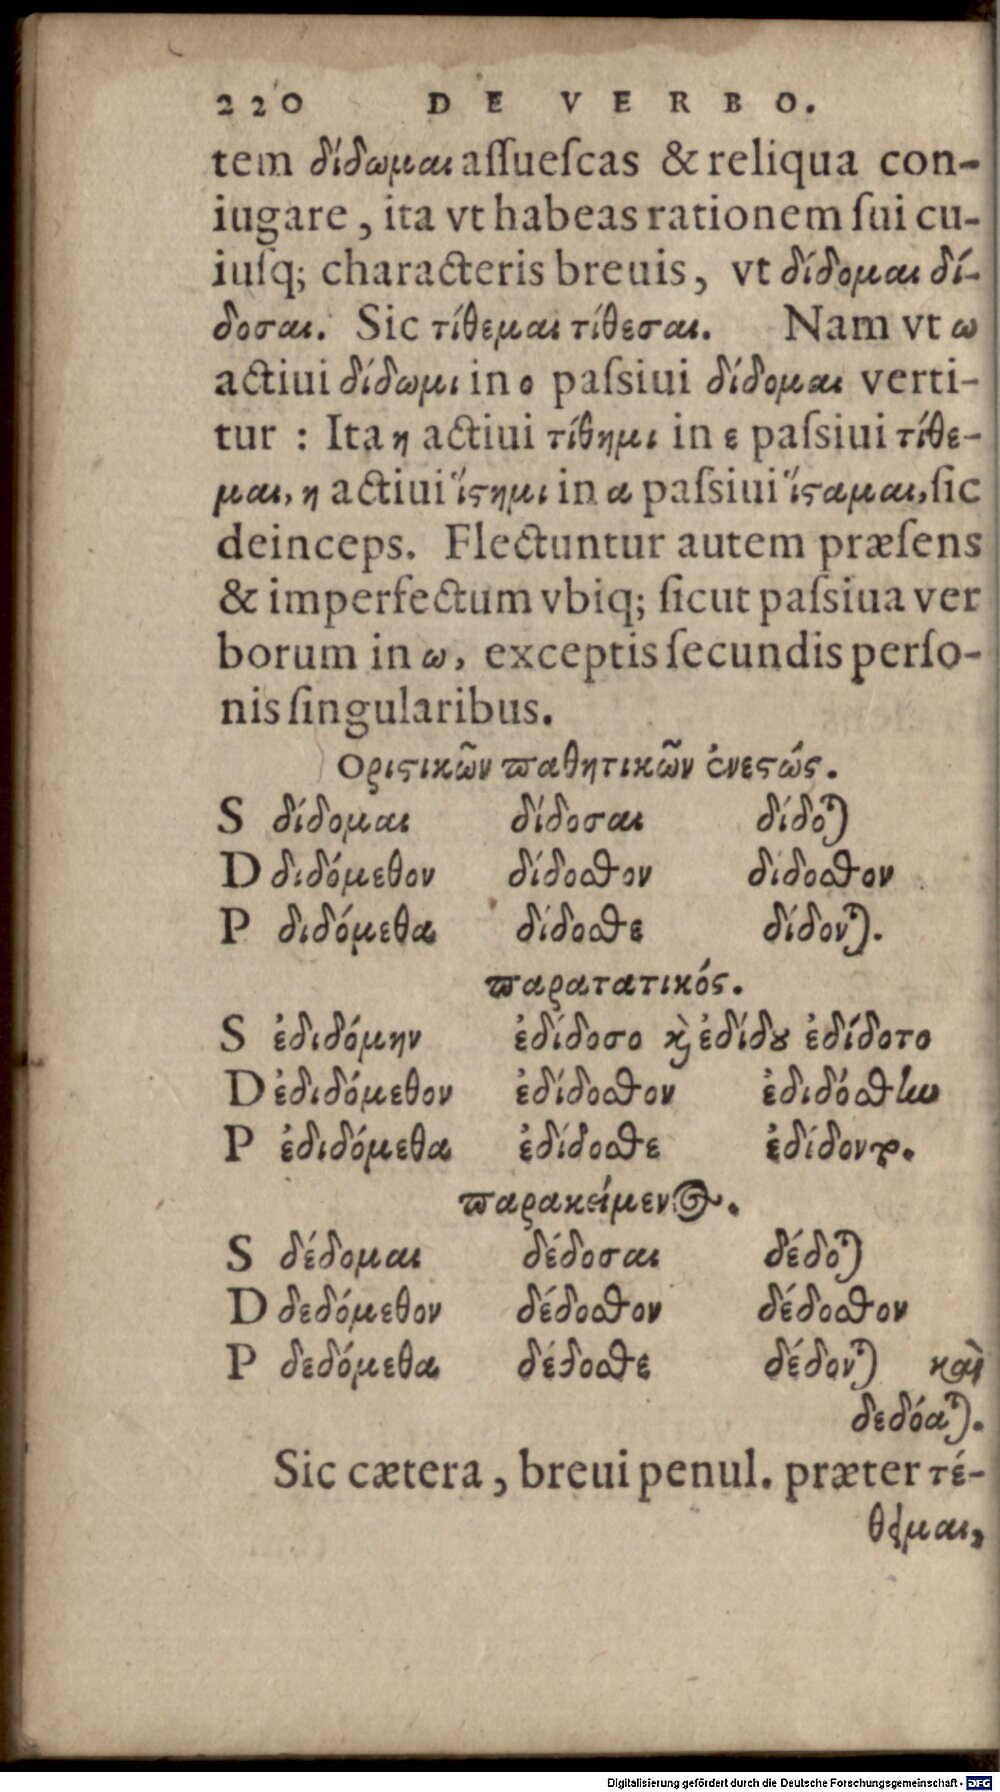 220 DE VERBO.
tem δίδωμαι aſſueſcas & reliqua con-
iugare, ita vt habeas rationem ſui cu-
iuſq; characteris breuis, vt δίδομαι δί-
δοσαι. Sic τίθεμαι τίθεσαι. Nam vt ω
actiui δίδωμι in ο paſsiui δίδομαι verti-
tur : Ita η actiui τίθημι in ε paſsiui τίθε-
μαι, η actiui ἵϛημι in α paſsiui ἵϛαμαι, ſic
deinceps. Flectuntur autem præſens
& imperfectum vbiq; ſicut paſsiua ver
borum in ω, exceptis ſecundis perſo-
nis ſingularibus.
Οριϛικῶν παθητικῶν ἐνεϛώς.
S δίδομαι δίδοσαι δίδοται
D διδόμεθον δίδοσθον δίδοσθον
P διδόμεθα δίδοσθε δίδονται.
παρατατικός.
S ἐδιδόμην ἐδίδοσο κὶ ἐδίδȣ ἐδίδοτο
D ἐδιδόμεθον ἐδίδοσθον ἐδιδόσθην
P ἐδιδόμεθα ἐδίδοσθε ἐδίδοντο.
παρακείμενος.
S δέδομαι δέδοσαι δέδοται
D δεδόμεθον δέδοσθον δέδοσθον
P δεδόμεθα δέδοσθε δέδονται καὶ
δεδόαται.
Sic cætera, breui penul. præter τέ-
θειμαι,
Digitalisierung gefördert durch die Deutsche Forschungsgemeinschaft - DFG